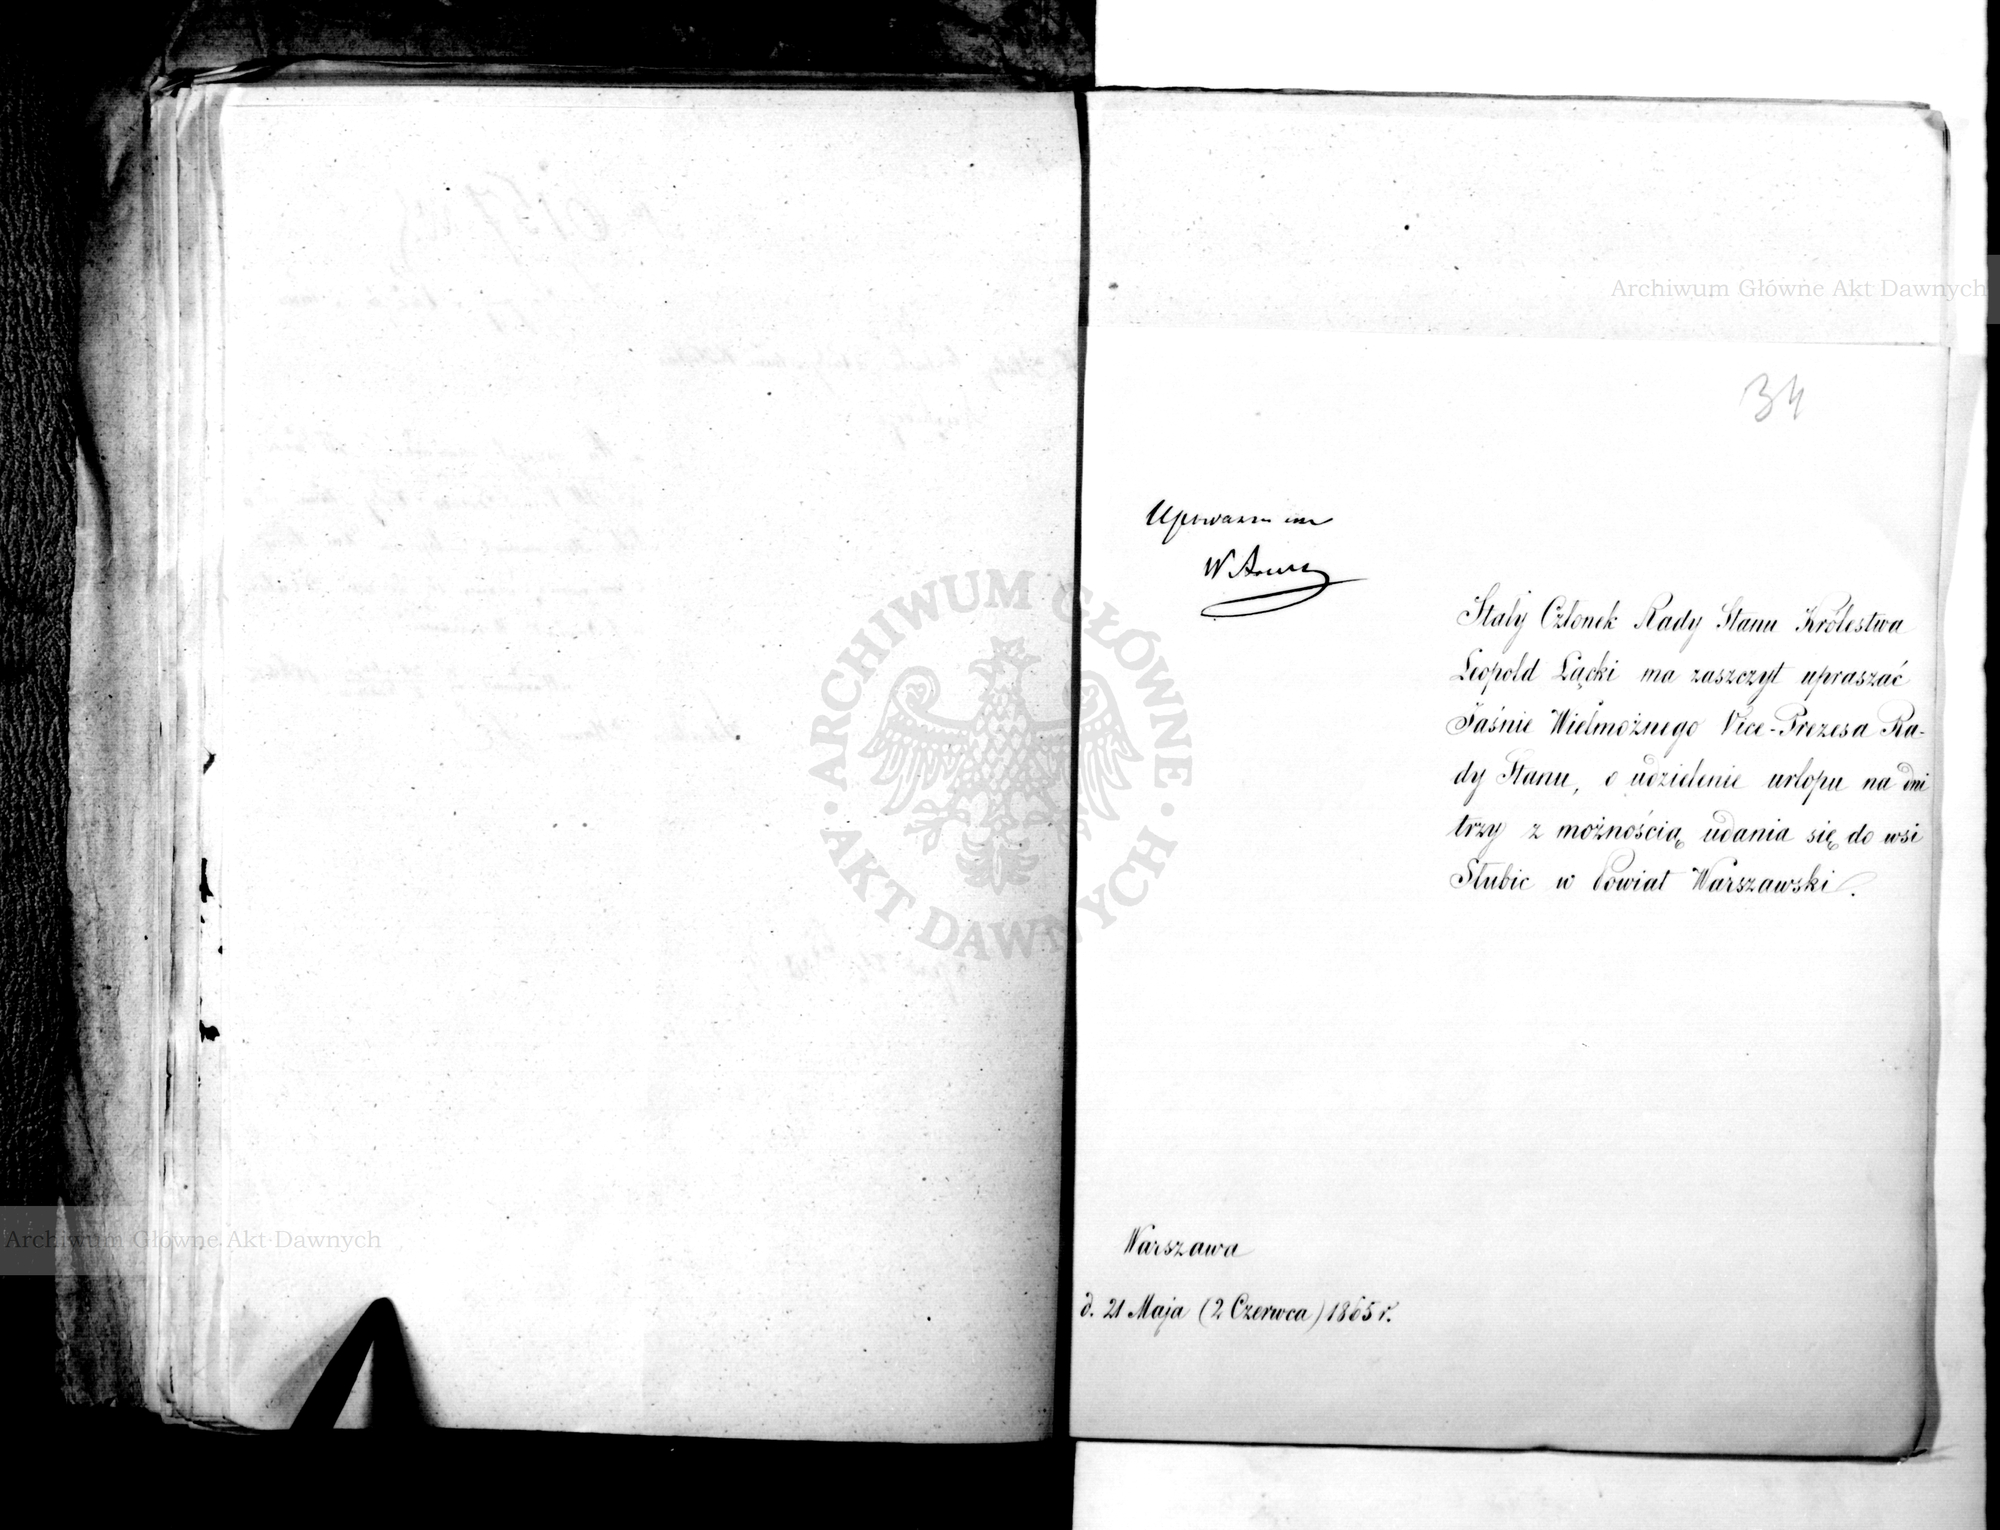 34
Upoważniam
Stały Członek Rady Stanu Królestwa
Leopold Łącki ma zaszczyt upraszać
Jaśnie Wielmożnego Vice-Prezesa Ra-
dy Stanu, o udzielenie urlopu na dni
trzy z możnością udania się do wsi
Słubic w Powiat Warszawski.
Warszawa
d. 21 Maja (2 Czerwca) 1865 r.
Archiwum Główne Akt Dawnych
Archiwum Główne Akt Dawnych
ARCHIWUM GŁÓWNE
AKT DAWNYCH